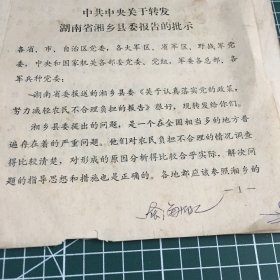 中共中央关于转发
湖南省湘乡县委报告的批示
各省、市、自治区党委，各大军区、省军区、野战军党
委，中央和国家机关各部委党委、党组，军委各总部、各
军兵种党委：
湖南省委报送的湘乡县委《关于认真落实党的政策，
努力减轻农民不合理负担的报告》很好，现转发给你们。
湘乡县委提出的问题，是一个在全国相当多的地方普
遍存在着的严重问题。他们对农民负担不合理的情况调查
得比较清楚，对形成的原因分析得比较合乎实际，解决问
题的指导思想和措施也是正确的。各地都应该参照湘乡的
—1—